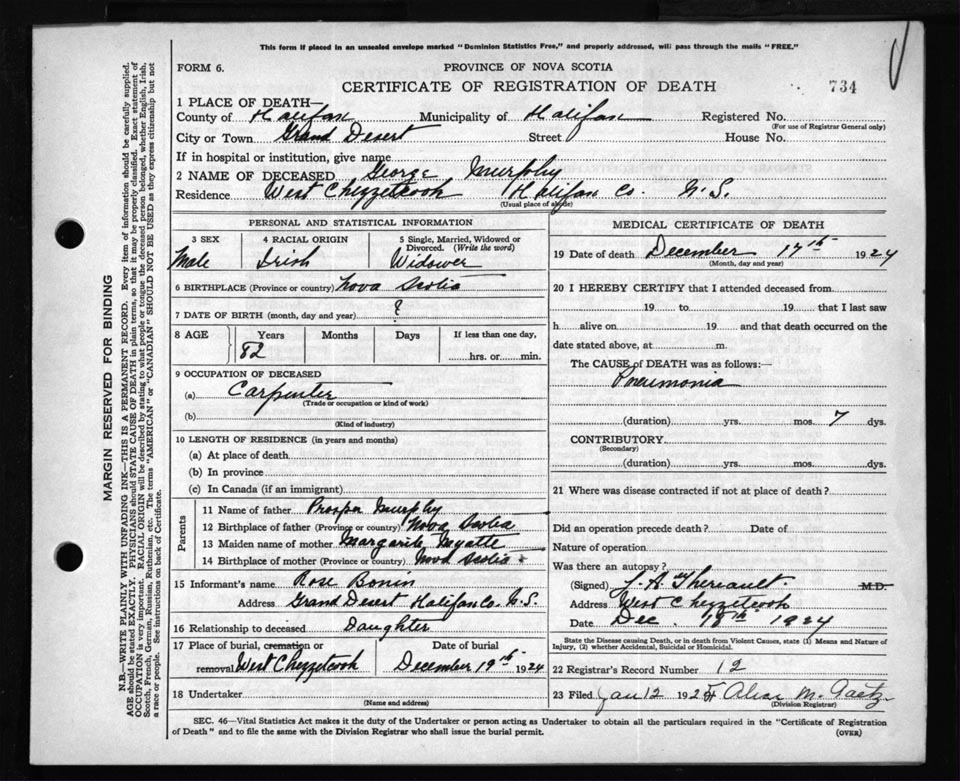 This form if placed in an unsealed envelope marked "Dominion Statistics Free," and properly addressed, will pass through the mails "FREE."
FORM 6.
PROVINCE OF NOVA SCOTIA
CERTIFICATE OF REGISTRATION OF DEATH
734
1 PLACE OF DEATH—
County of Halifax Municipality of Halifax Registered No.
(For use of Registrar General only)
City or Town Grand Desert Street House No.
If in hospital or institution, give name
2 NAME OF DECEASED George Murphy
Residence West Chezzetcook Halifax Co. N.S.
(Usual place of abode)
PERSONAL AND STATISTICAL INFORMATION
3 SEX
Male
4 RACIAL ORIGIN
Irish
5 Single, Married, Widowed or Divorced. (Write the word)
Widower
6 BIRTHPLACE (Province or country) Nova Scotia
7 DATE OF BIRTH (month, day and year) ?
8 AGE Years Months Days If less than one day,
82 hrs. or min.
9 OCCUPATION OF DECEASED
(a) Carpenter
(Trade or occupation or kind of work)
(b)
(Kind of industry)
10 LENGTH OF RESIDENCE (in years and months)
(a) At place of death
(b) In province
(c) In Canada (if an immigrant)
Parents
11 Name of father Prosper Murphy
12 Birthplace of father (Province or country) Nova Scotia
13 Maiden name of mother Margarite Myatte
14 Birthplace of mother (Province or country) Nova Scotia
15 Informant's name Rose Bonin
Address Grand Desert Halifax Co. N.S.
16 Relationship to deceased Daughter
17 Place of burial, cremation or removal West Chezzetcook
Date of burial
December 19th 1924
18 Undertaker
(Name and address)
MEDICAL CERTIFICATE OF DEATH
19 Date of death December 17th 1924
(Month, day and year)
20 I HEREBY CERTIFY that I attended deceased from
19 to 19 that I last saw
h alive on 19 and that death occurred on the
date stated above, at m.
The CAUSE of DEATH was as follows:—
Pneumonia
(duration) yrs. mos. 7 dys.
CONTRIBUTORY
(Secondary)
(duration) yrs. mos. dys.
21 Where was disease contracted if not at place of death?
Did an operation precede death? Date of
Nature of operation
Was there an autopsy?
(Signed) J. A. Theriault. M.D.
Address West Chezzetcook
Date Dec. 18th 1924
State the Disease causing Death, or in death from Violent Causes, state (1) Means and Nature of Injury, (2) whether Accidental, Suicidal or Homicidal.
22 Registrar's Record Number 12
23 Filed Jan 12 192 M. Gaetz
(Division Registrar)
SEC. 46—Vital Statistics Act makes it the duty of the Undertaker or person acting as Undertaker to obtain all the particulars required in the "Certificate of Registration
of Death" and to file the same with the Division Registrar who shall issue the burial permit.
(OVER)
MARGIN RESERVED FOR BINDING
N.B.—WRITE PLAINLY WITH UNFADING INK—THIS IS A PERMANENT RECORD. Every item of information should be carefully supplied.
AGE should be stated EXACTLY. PHYSICIANS should STATE CAUSE OF DEATH in plain terms, so that it may be properly classified. Exact statement of
OCCUPATION is very important. RACIAL ORIGIN will be described by stating to what people or tongue the deceased person belonged, whether English, Irish,
Scotch, French, German, Russian, Ruthenian, etc. The terms "AMERICAN" or "CANADIAN" SHOULD NOT BE USED as they express citizenship but not
a race or people. See instructions on back of Certificate.